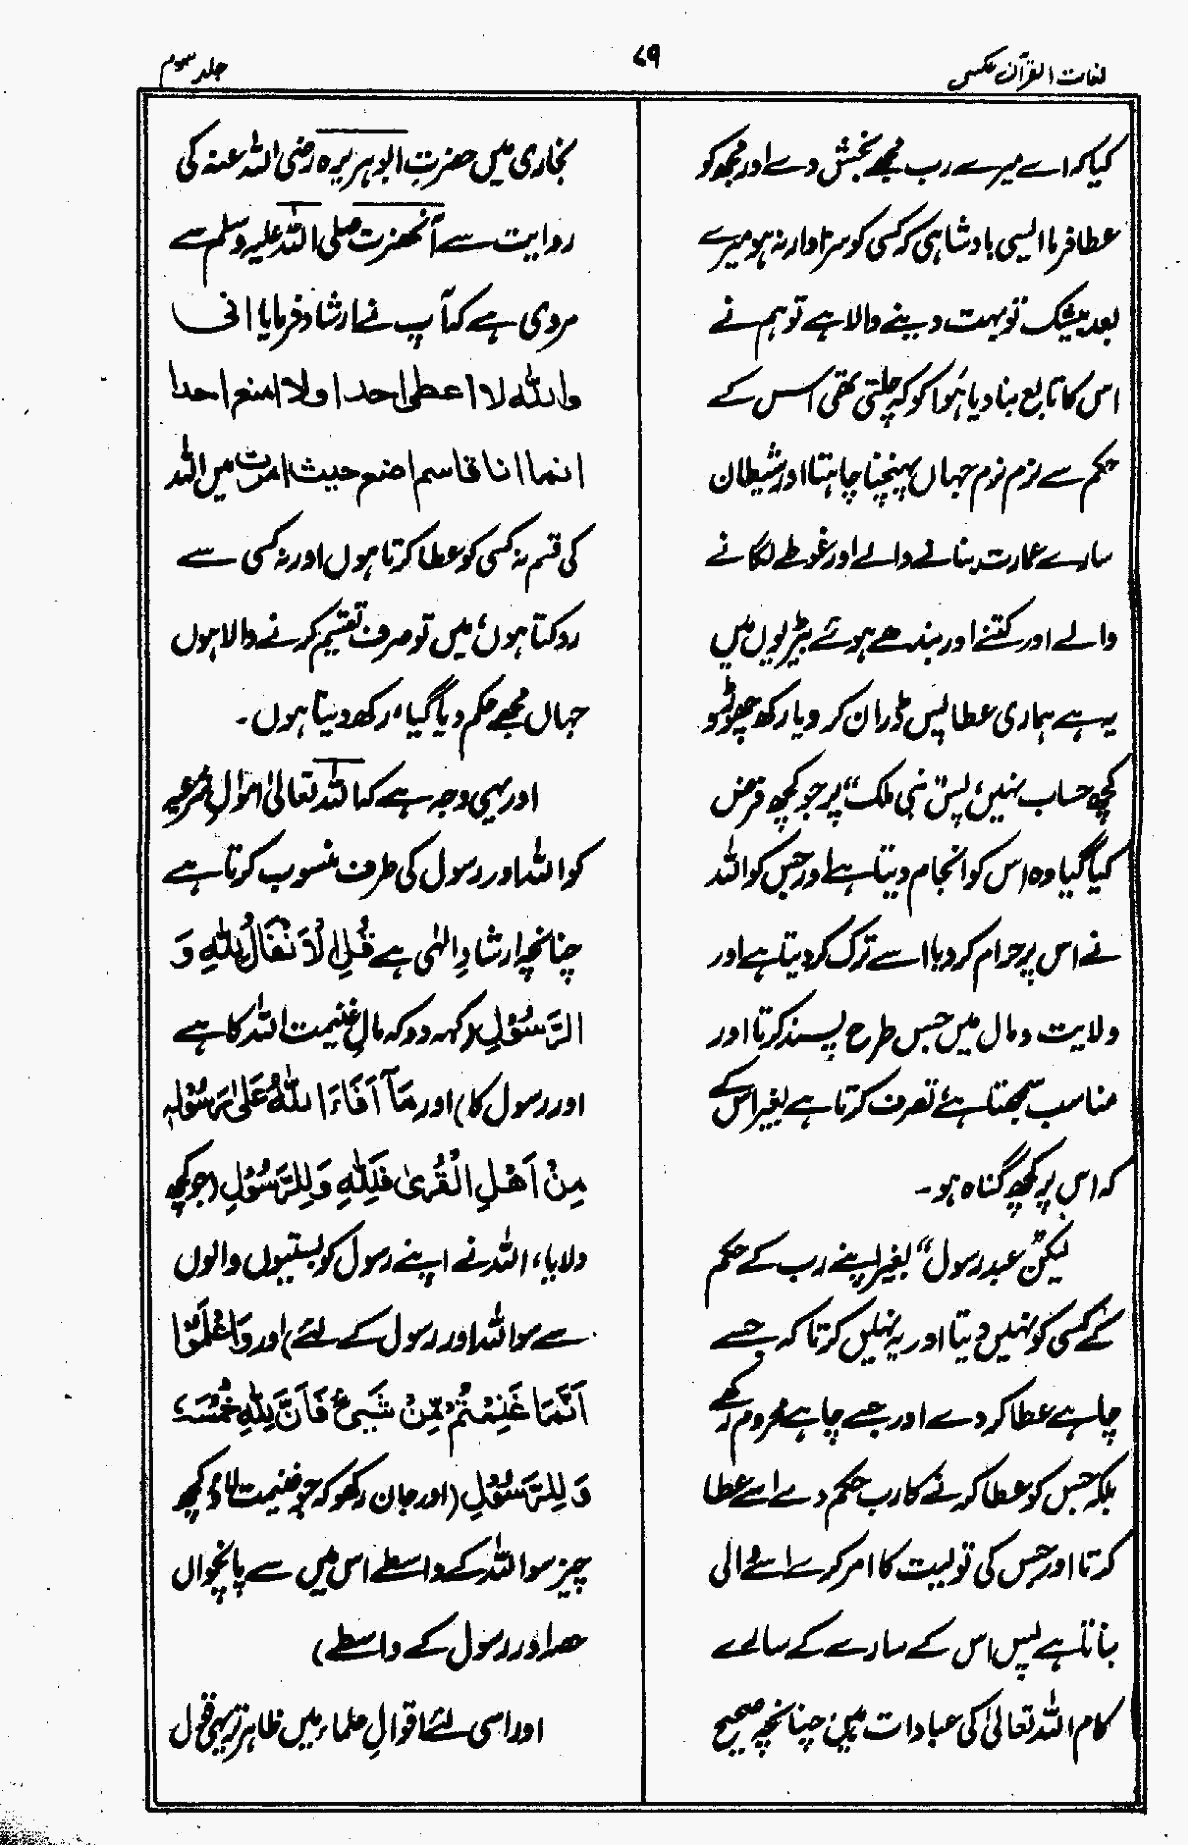 لغات القرآن عکسی
۷۹
جلد سوم
کیا کہ اے میرے رب مجھے بخش دے اور مجھ کو
عطا فرما ایسی بادشاہی کہ کسی کو سزاوار نہ ہو میرے
بعد بیشک تو بہت دینے والا ہے تو ہم نے
اس کا تابع بنا دیا ہَوا کو کہ چلتی تھی اس کے
حکم سے نرم نرم جہاں پہنچنا چاہتا اور شیطان
سارے عمارت بنانے والے اور غوطے لگانے
والے اور کتنے اور بندھے ہوئے بیڑیوں میں
یہ ہے ہماری عطا پس احسان کر و یا رکھ چھوڑو
کچھ حساب نہیں؛ پس "نبی ملک" پر جو کچھ فرض
کیا گیا وہ اس کو انجام دیتا ہے اور جس کو اللہ
نے اس پر حرام کر دیا اسے ترک کر دیتا ہے اور
ولایت و مال میں جس طرح پسند کرتا اور
مناسب سمجھتا ہے تصرف کرتا ہے بغیر اس کے
کہ اس پر کچھ گناہ ہو۔
لیکن "عبد رسول" بغیر اپنے رب کے حکم
کے کسی کو نہیں دیتا اور یہ نہیں کرتا کہ جسے
چاہے عطا کر دے اور جسے چاہے محروم رکھے
بلکہ جس کو عطا کرنے کا رب حکم دے اسے عطا
کرتا اور جس کی تولیت کا امر کرے اسے والی
بناتا ہے پس اس کے سارے کے سارے
کام اللہ تعالیٰ کی عبادات ہیں؛ چنانچہ صحیح
بخاری میں حضرت ابو ہریرہ رضی اللہ عنہ کی
روایت سے آنحضرت صلی اللہ علیہ وسلم سے
مروی ہے کہ آپ نے ارشاد فرمایا انی
واللہ لا اعطی احدا ولا امنع احدا
انما انا قاسم اضع حیث امرت میں اللہ
کی قسم نہ کسی کو عطا کرتا ہوں اور نہ کسی سے
روکتا ہوں؛ میں تو صرف تقسیم کرنے والا ہوں
جہاں مجھے حکم دیا گیا، رکھ دیتا ہوں۔
اور یہی وجہ ہے کہ اللہ تعالیٰ اموالِ شرعیہ
کو اللہ اور رسول کی طرف منسوب کرتا ہے
چنانچہ ارشادِ الٰہی ہے قُلِ الْاَنْفَالُ لِلّٰہِ وَ
الرَّسُوْلِ (کہہ دو کہ مالِ غنیمت اللہ کا ہے
اور رسول کا) اور مَآ اَفَاءَ اللّٰہُ عَلیٰ رَسُوْلِہٖ
مِنْ اَھْلِ الْقُرٰی فَلِلّٰہِ وَلِلرَّسُوْلِ (جو کچھ
دلایا، اللہ نے اپنے رسول کو بستیوں والوں
سے سو اللہ اور رسول کے لئے) اور وَاعْلَمُوْا
اَنَّمَا غَنِمْتُمْ مِّنْ شَیْءٍ فَاَنَّ لِلّٰہِ خُمُسَہٗ
وَ لِلرَّسُوْلِ (اور جان رکھو کہ جو غنیمت لاؤ کچھ
چیز سو اللہ کے واسطے اس میں سے پانچواں
حصہ اور رسول کے واسطے)
اور اسی لئے اقوالِ علماء میں ظاہر تر یہی قول